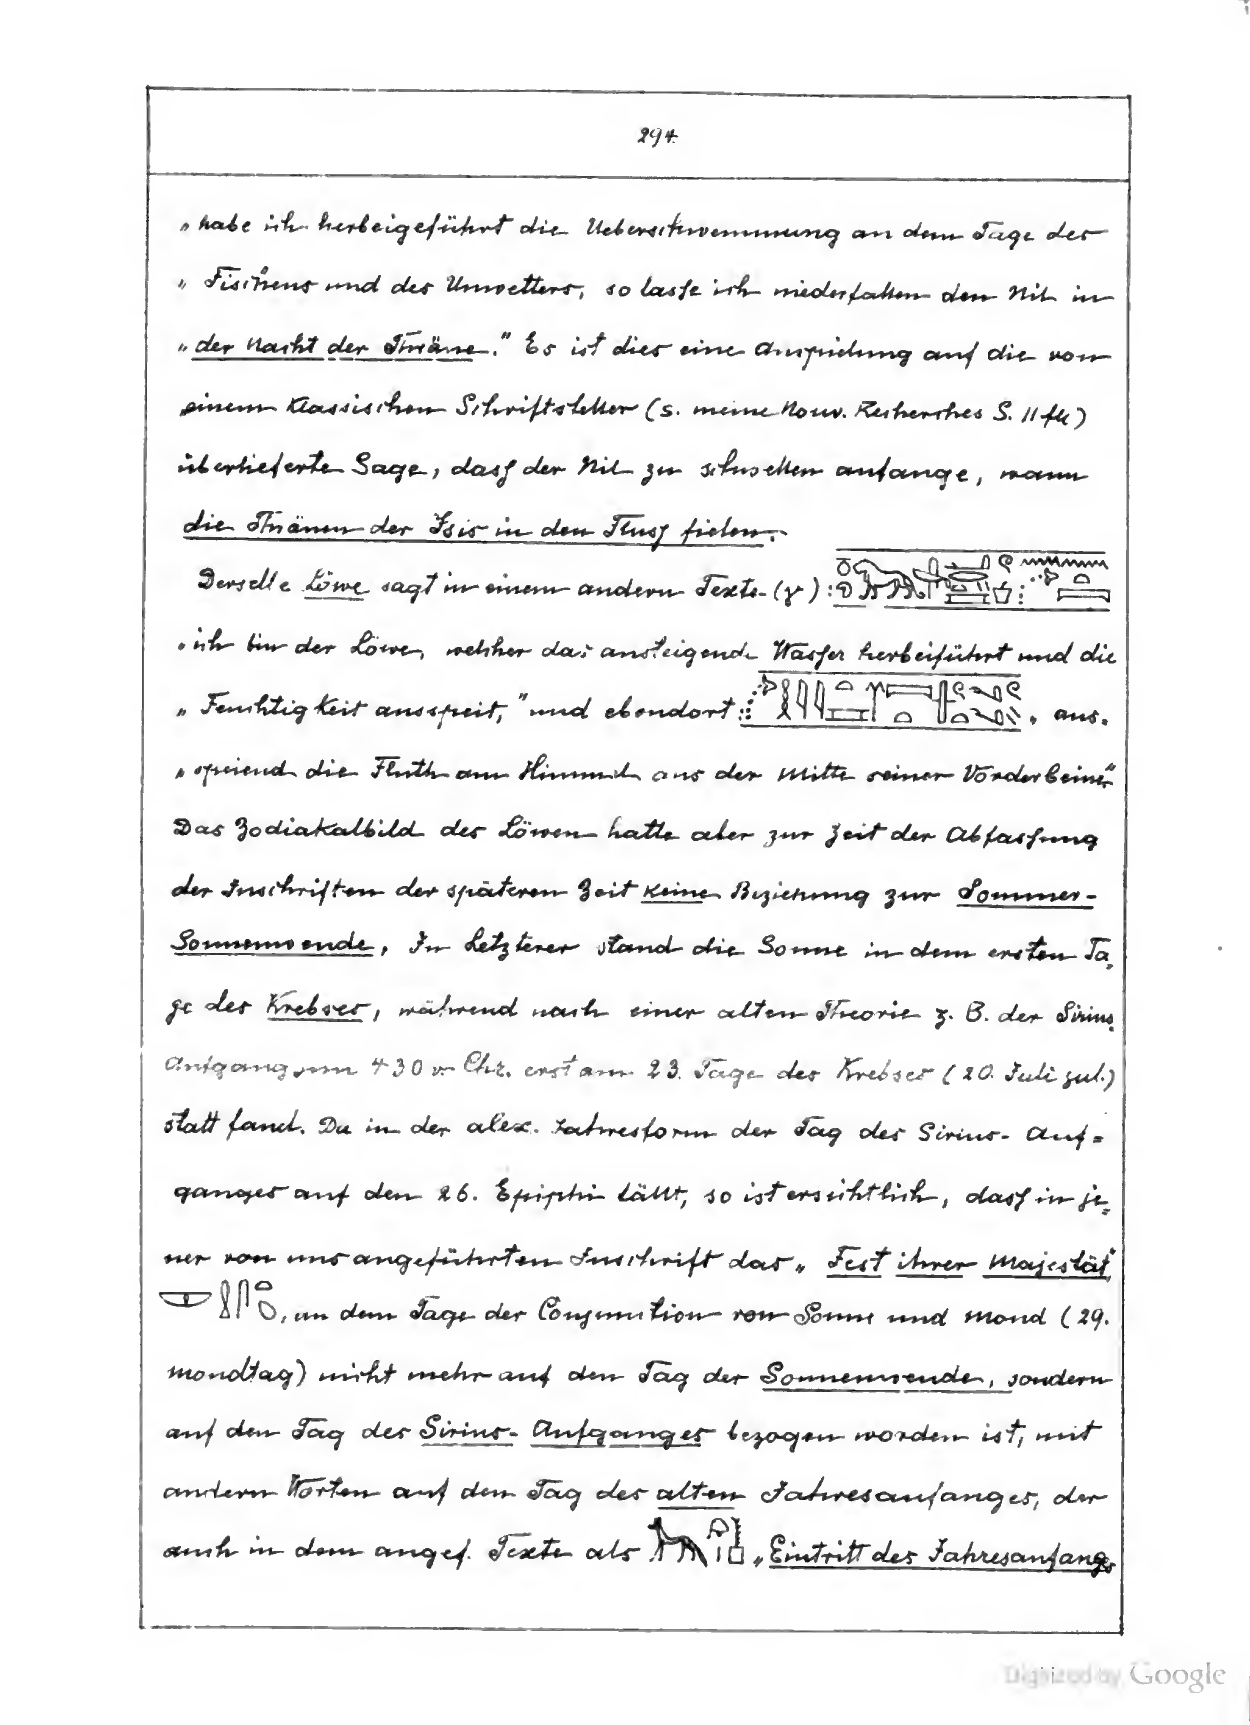 294.
„habe ich herbeigeführt die Ueberschwemmung an dem Tage des
„Fischens und des Unwetters, so lasse ich niederfallen den Nil in
„der Nacht der Thräne.“ Es ist dies eine Anspielung auf die von
einem klassischen Schriftsteller (s. meine Nouv. Recherches S. 11 fll)
überlieferte Sage, dass der Nil zu schwellen anfange, wann
die Thränen der Isis in den Fluss fielen.
Derselbe Löwe sagt in einem andern Texte (γ):
„ich bin der Löwe, welcher das ansteigende Wasser herbeiführt und die
„Feuchtigkeit ausspeit,“ und ebendort: „aus-
„speiend die Fluth am Himmel aus der Mitte seiner Vorderbeine“
Das Zodiakalbild des Löwen hatte aber zur Zeit der Abfassung
der Inschriften der späteren Zeit keine Beziehung zur Sommer-
Sonnenwende, In letzterer stand die Sonne in dem ersten Ta-
ge des Krebses, während nach einer alten Theorie z. B. der Sirius
Aufgang um 430 v. Chr. erst am 23. Tage des Krebses (20. Juli jul.)
statt fand. Da in der alex. Jahresform der Tag des Sirius-Auf=
ganges auf den 26. Epiphi fällt, so ist ersichtlich, dass in je-
ner von uns angeführten Inschrift das „Fest ihrer Majestät“
, an dem Tage der Conjunction von Sonne und Mond (29.
Mondtag) nicht mehr auf den Tag der Sonnenwende, sondern
auf den Tag des Sirius-Aufganges bezogen worden ist, mit
andern Worten auf den Tag des alten Jahresanfanges, der
auch in dem angef. Texte als „Eintritt des Jahresanfangs
Digitized by Google